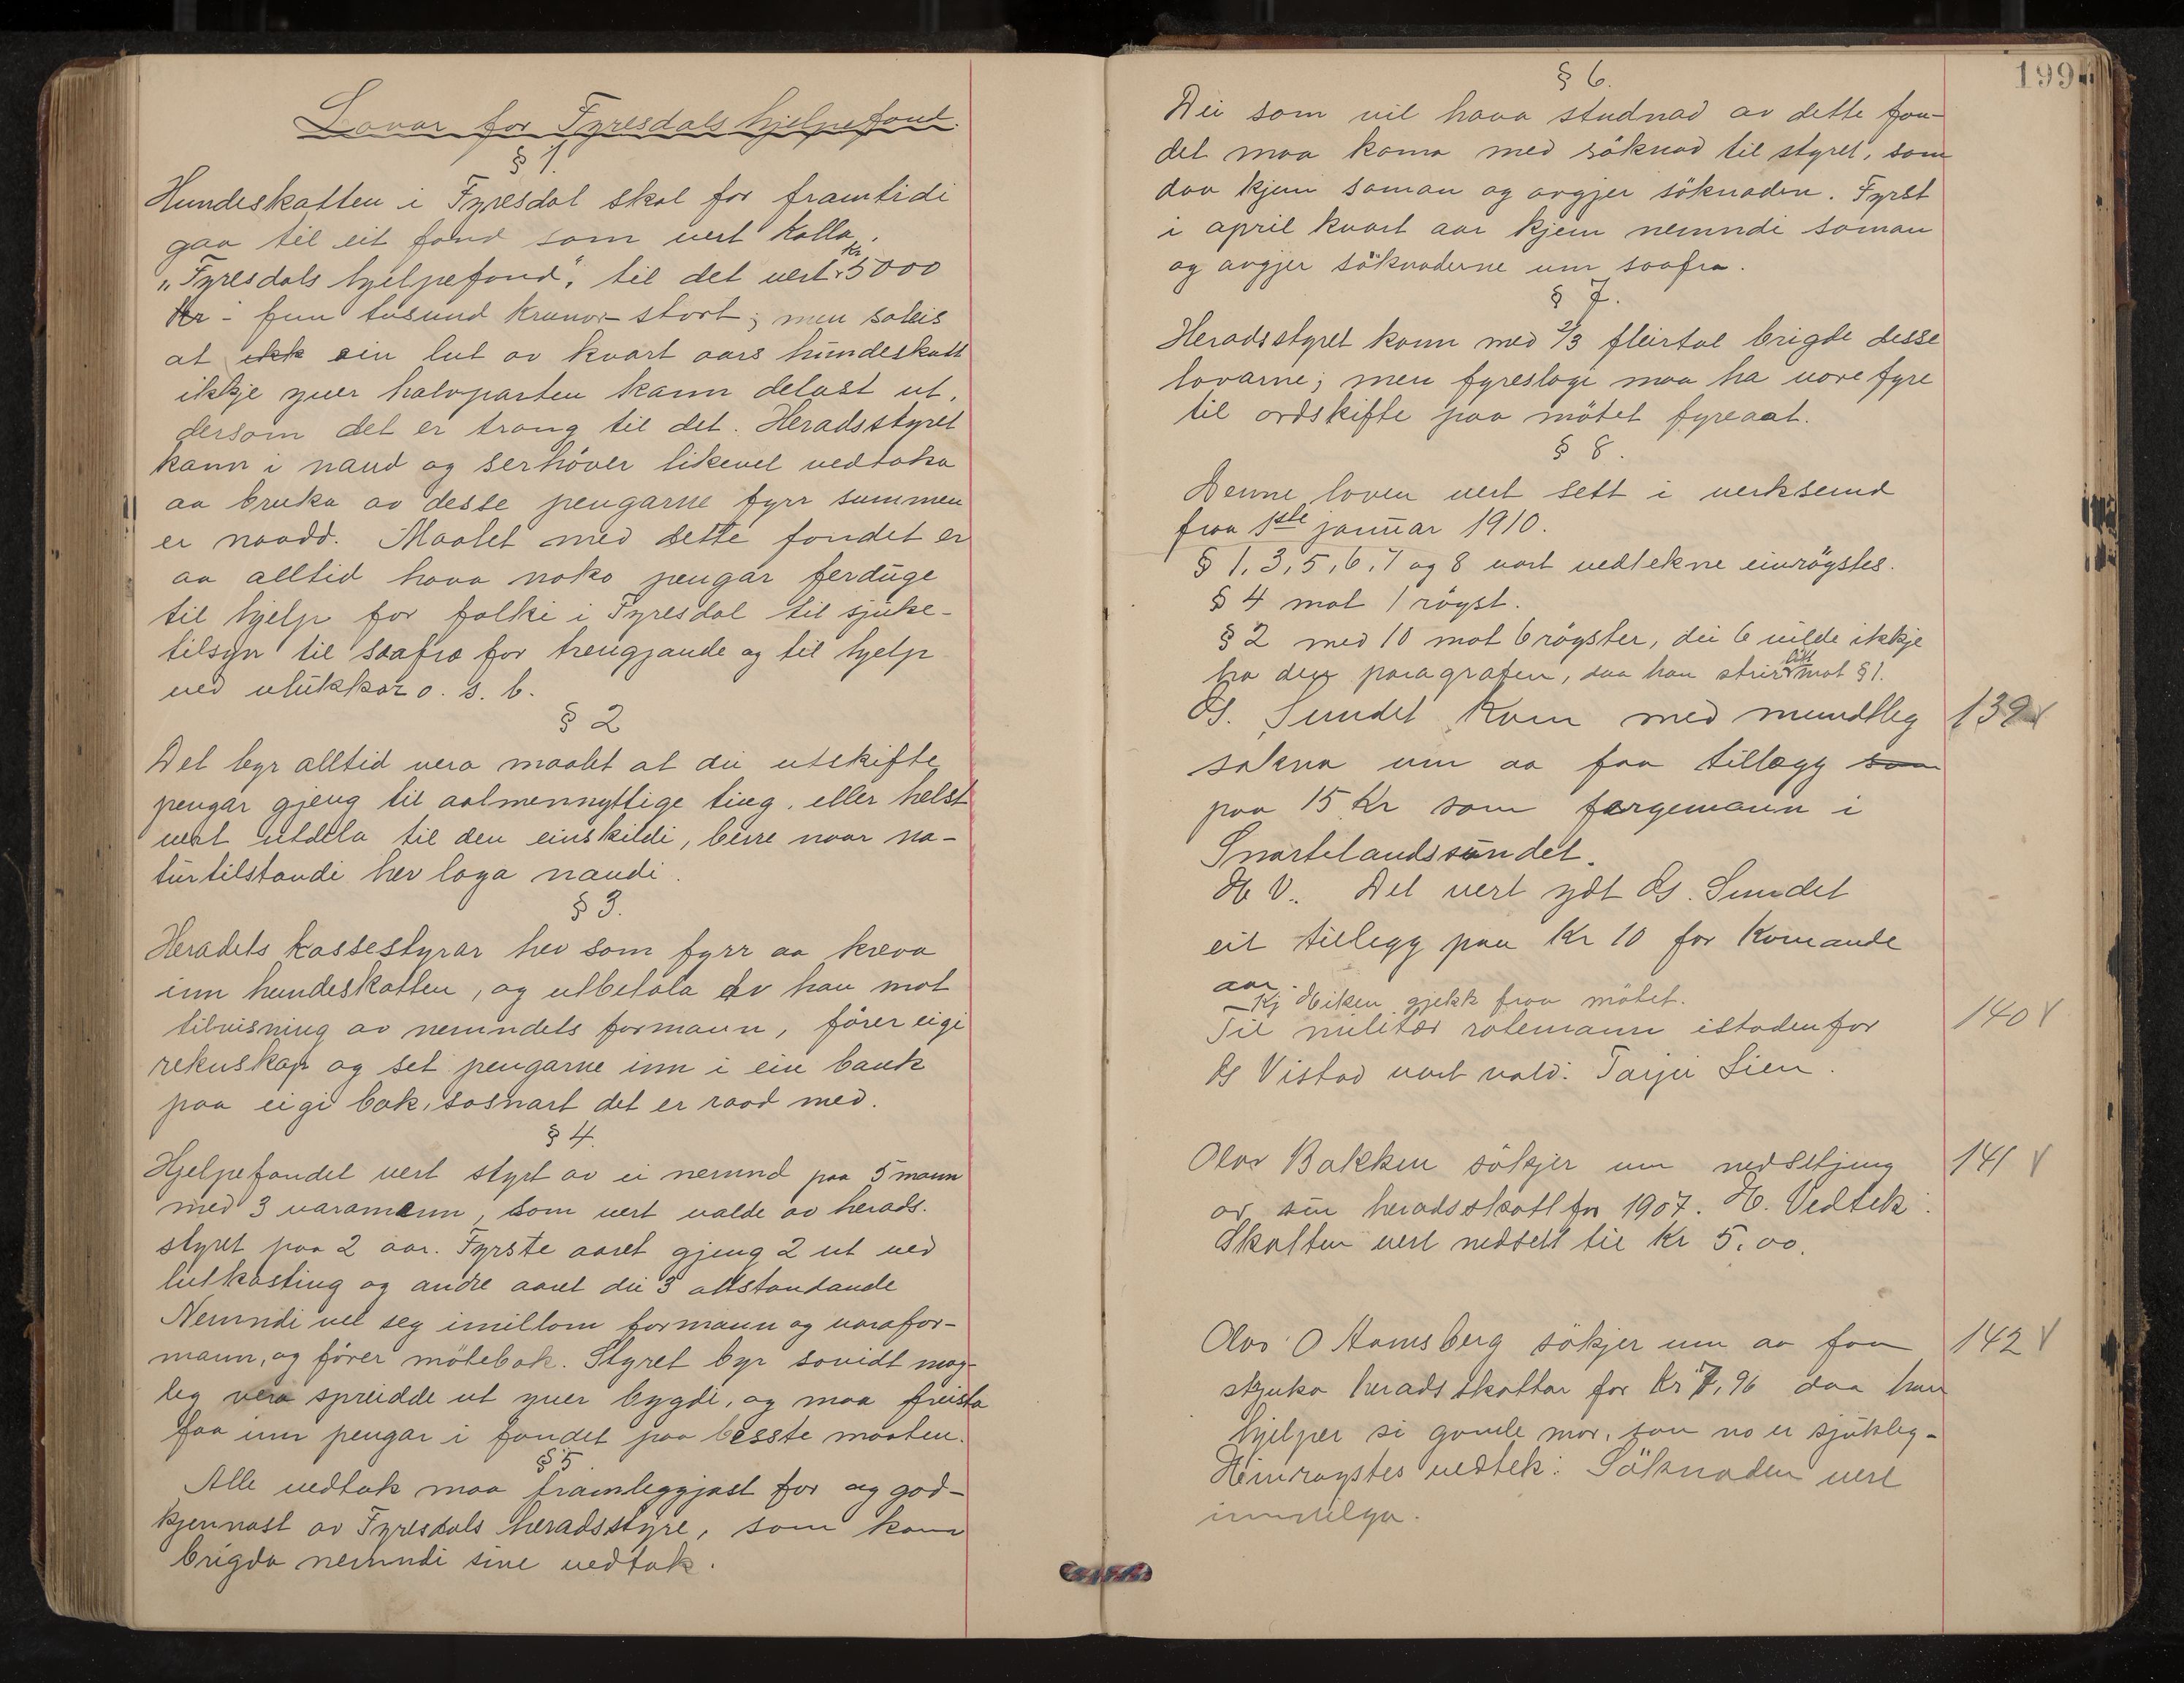 Lovar for Fyresdals hjelpefond.
§ 1.
Hundeskatten i Fyresdal skal for framtidi
gaa til eit fond som vert kalla,
„Fyresdals hjelpefond“, til det vert Kr 5000
Kr - fem tusund krunor - stort; men soleis
at ikk ein lut av kvart aars hundeskatt
ikkje yver halvparten kann delast ut,
dersom det er trong til det. Heradsstyret
kann i naud og serhöver likevel vedtaka
aa bruka av desse pengarne fyrr summen
er naadd. Maalet med dette fondet er
aa alltid hava noko pengar ferduge
til hjelp for folki i Fyresdal til sjuke-
tilsyn til saafro for trengjande og til hjelp
ved ulukkar o. s. b.
§ 2
Det byr alltid vera maalet at dei utskifte
pengar gjeng til aalmennyttige ting, eller helst
vert utdela til den einskildi, berre naar na-
turtilstandi hev laga naudi.
§ 3.
Heradets kassestyrar hev som fyrr aa kreva
inn hundeskatten, og utbetala av han mot
tilvisning av nemndets formann, förer eigi
rekneskap og set pengarne inn i ein bank
paa eigi bok, sosnart det er raad med.
§ 4.
Hjelpefondet vert styrt av ei nemnd paa 5 mann
med 3 varamenn, som vert valde av herads-
styret paa 2 aar. Fyrste aaret gjeng 2 ut ved
lutkasting og andre aaret dei 3 attstandande
Nemndi vel seg imillom formann og varafor-
mann, og förer mötebok. Styret byr sovidt mog-
leg vera spreidde ut yver bygdi, og maa freista
faa inn pengar i fondet paa besste maaten.
§ 5
Alle vedtak maa framleggjast for og god-
kjennast av Fyresdals heradsstyre, som kann
brigda nemndi sine vedtak.
199
§ 6.
Dei som vil hava studnad av dette fon-
det maa koma med söknad til styret, som
daa kjem saman og avgjer söknaden. Fyrst
i april kvart aar kjem nemndi saman
og avgjer söknaderne um saafro.
§ 7.
Heradsstyret kann med 2/3 fleirtal brigde desse
lovarne; men fyreslogi maa ha vore fyre
til ordskifte paa mötet fyreaat.
§ 8.
Denne loven vert sett i verksemd
fraa 1ste januar 1910.
§ 1, 3, 5, 6, 7 og 8 vart vedtekne einröystes.
§ 4 mot 1 röyst.
§ 2 med 10 mot 6 röyster, dei 6 vilde ikkje
ha den paragrafen, daa han strir likt mot § 1.
Sundet kom med mundtleg 139
sokna um aa faa tillægg som
paa 15 Kr som fergemann i
Snartelandssundet.
H V. Det vert ydt Sundet
eit tillegg paa Kr 10 for komande
aar.
Kj Heiken gjekk fraa mötet.
Til militær rotemann istadenfor 140
Vistad vart vald: Tarjei Lien.
Olav Bakken sökjer um nedsetjing 141
av sin heradsskatt for 1907. H. Vedtek:
Skatten vert nedsett til Kr 5,00.
Olav O Hamsberg sökjer um aa faa 142
stroka heradsskattar for Kr 7,96 daa han
hjelper si gamle mor, som no er sjukleg -
H einroystes vedtek: Söknaden vert
innvilga.